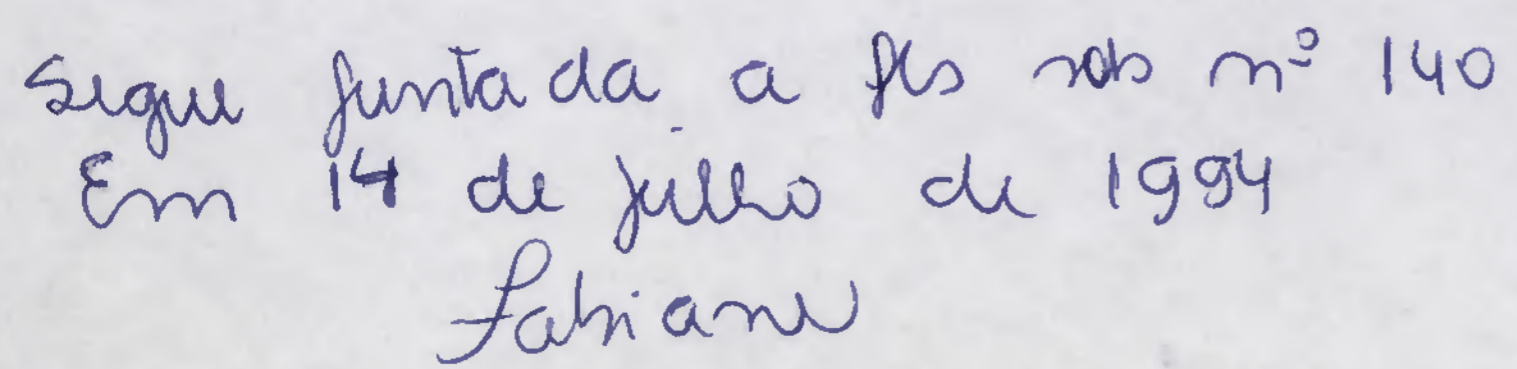 Segue juntada a fls sob nº 140
Em 14 de julho de 1994
Fabiane